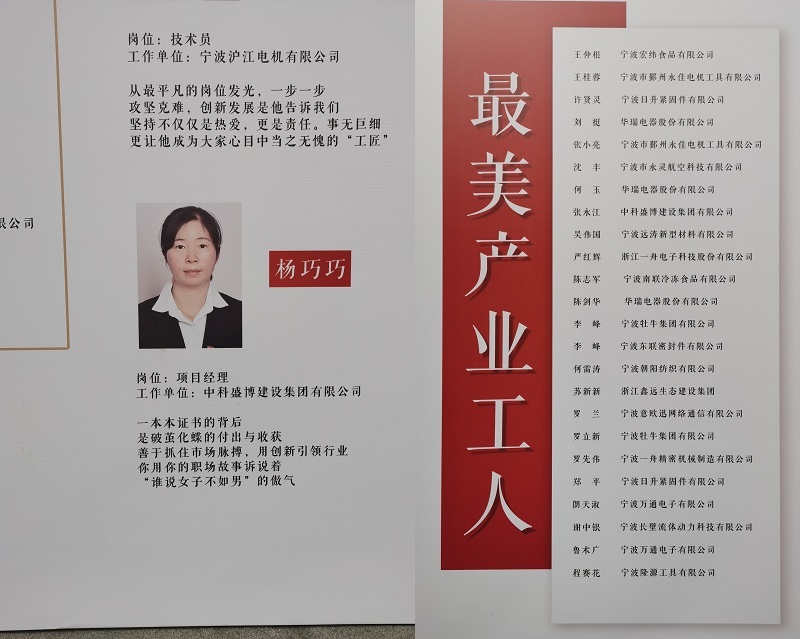 岗位：技术员
工作单位：宁波沪江电机有限公司
从最平凡的岗位发光，一步一步
攻坚克难，创新发展是他告诉我们
坚持不仅仅是热爱，更是责任。事无巨细
更让他成为大家心目中当之无愧的“工匠”
限公司
杨巧巧
岗位：项目经理
工作单位：中科盛博建设集团有限公司
一本本证书的背后
是破茧化蝶的付出与收获
善于抓住市场脉搏，用创新引领行业
你用你的职场故事诉说着
“谁说女子不如男”的傲气
最美产业工人
王仲根 宁波宏纬食品有限公司
王桂蓉 宁波市鄞州永佳电机工具有限公司
许贤灵 宁波日升紧固件有限公司
刘 挺 华瑞电器股份有限公司
张小亮 宁波市鄞州永佳电机工具有限公司
沈 丰 宁波市永灵航空科技有限公司
何 玉 华瑞电器股份有限公司
张永江 中科盛博建设集团有限公司
吴伟国 宁波远涛新型材料有限公司
严红辉 浙江一舟电子科技股份有限公司
陈志军 宁波南联冷冻食品有限公司
陈剑华 华瑞电器股份有限公司
李 峰 宁波牡牛集团有限公司
李 峰 宁波东联密封件有限公司
何雷涛 宁波朝阳纺织有限公司
苏新新 浙江鑫远生态建设集团
罗 兰 宁波意欧迅网络通信有限公司
罗立新 宁波牡牛集团有限公司
罗先伟 宁波一舟精密机械制造有限公司
郑 平 宁波日升紧固件有限公司
天淑 宁波万通电子有限公司
谢中银 宁波长壁流体动力科技有限公司
鲁术广 宁波万通电子有限公司
程赛花 宁波隆源工具有限公司